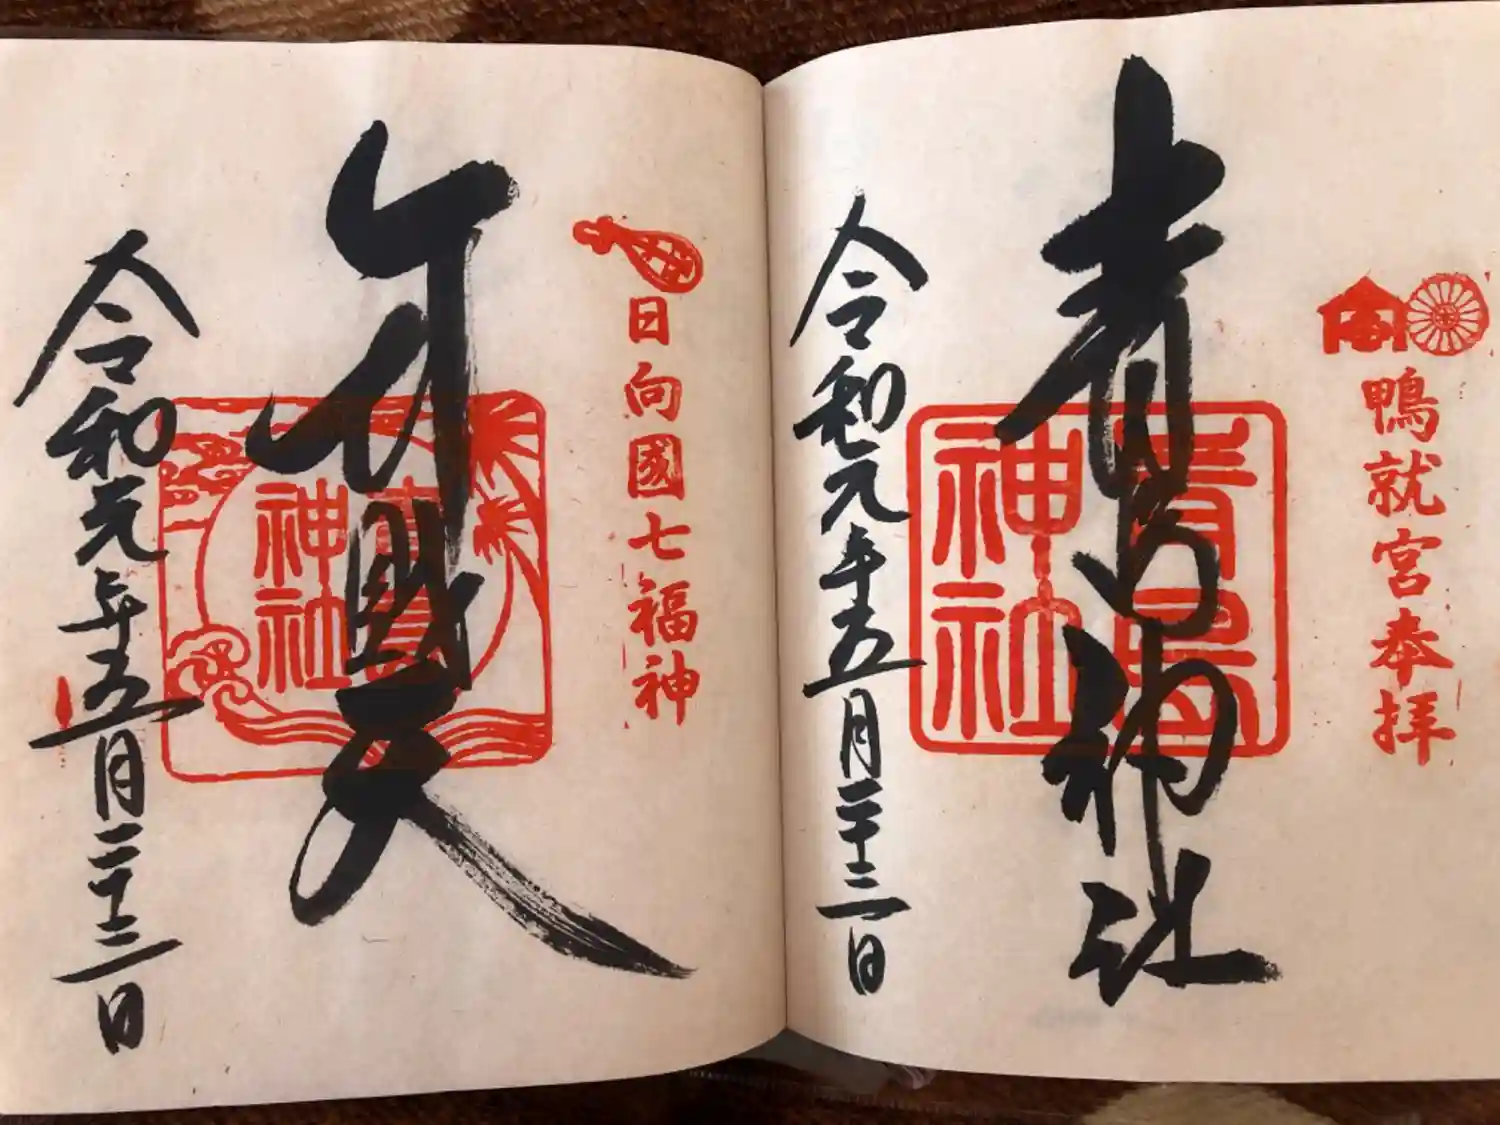 鴨就宮奉拝
青島神社
青島
神社
令和元年五月二十三日
日向國七福神
弁財天
青島
神社
令和元年五月二十三日